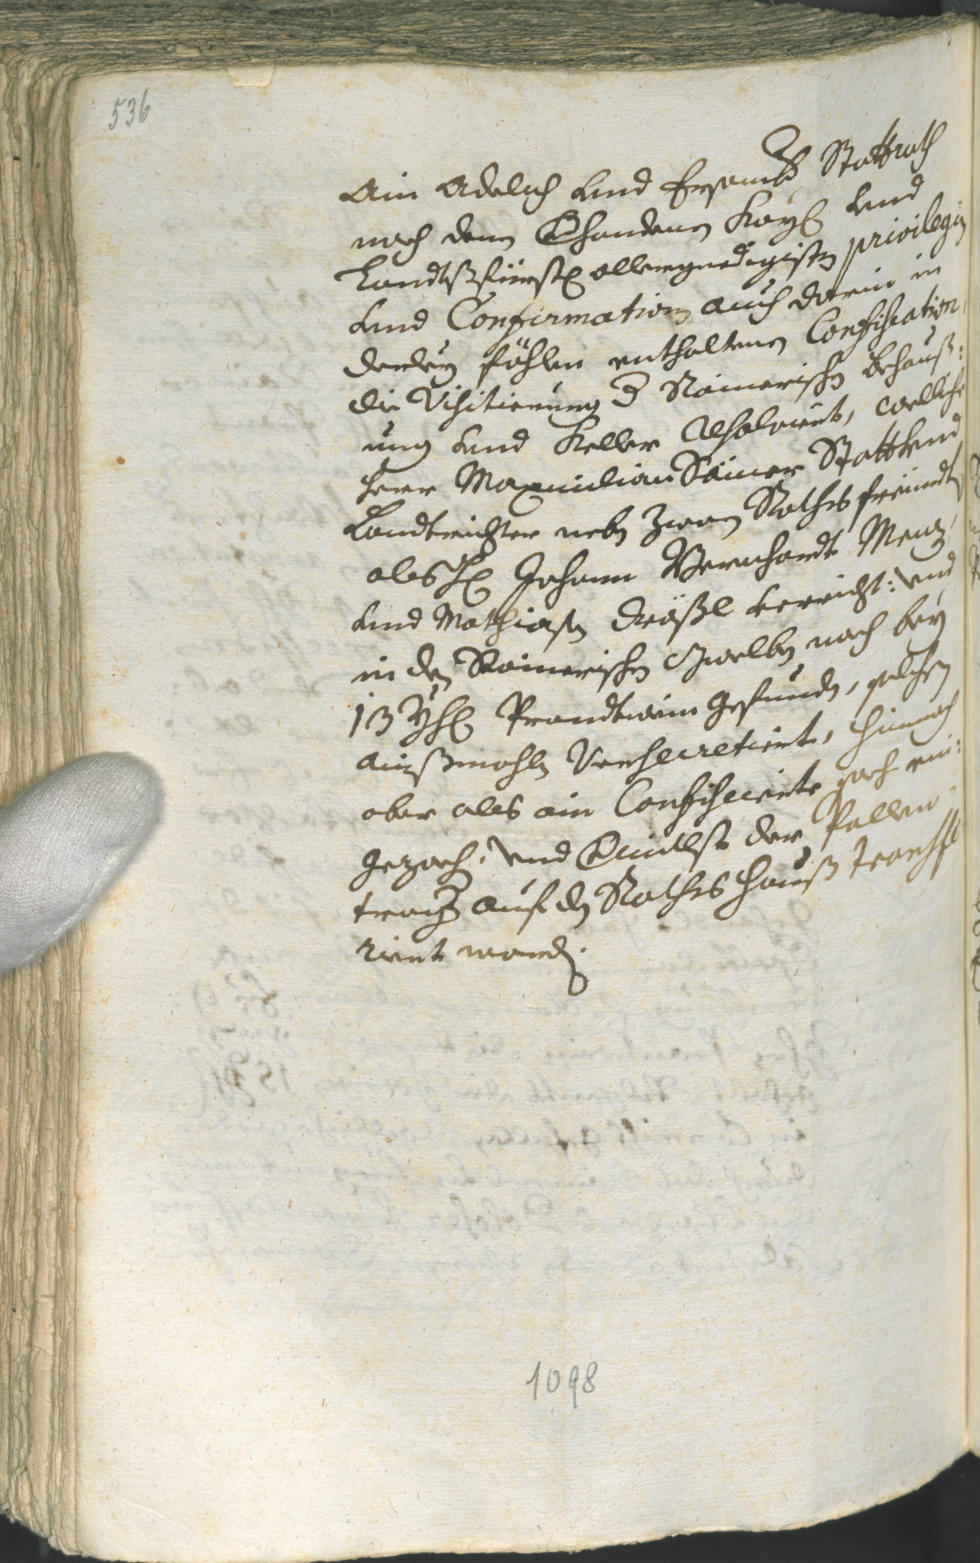 536
Ain Adelich und Ersamber Stattrath
nach denen Khandenen Kay: und
Landtsfürstl: allergnedigisten privilegien
und Confirmation auch darin in
derley föhlen enthaltenen Confiscation
die Visitierung der Rämerischen behauß:
ung und Keller resolviert, welliche
Herr Maximilian Sämer Statt und
Landtrichter neben zween Rathsfreindten
als H: Johann Bernhardt Menz,
und Mathiasen verricht: und
in den Rämerischen Gwelben noch bey
13 Prandtwein gefunden, solchen
außmohlen Versecretiert, hinnach
aber als ain Confisciert guet ein:
gezoch: und der Pallen
trager auf das Rathshauß transfe
riert worden.
1098